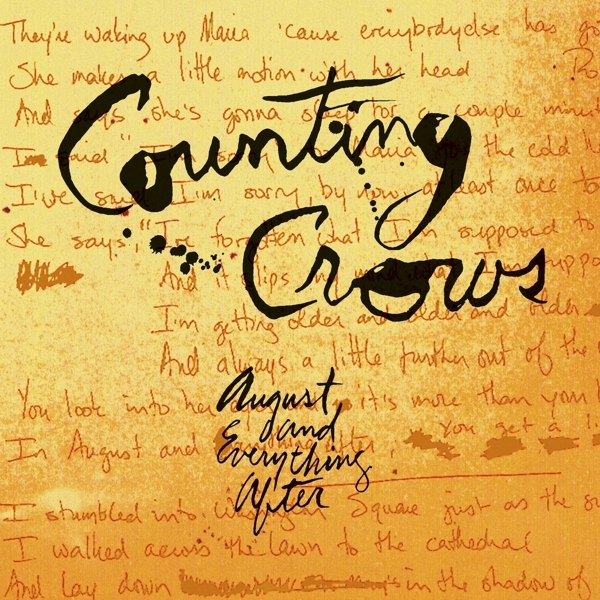 They're waking up Maria 'cause everybody else has go
She makes a little motion with her head
And says she's gonna sleep for a couple minut
I said "I'm sorry to Maria for the cold
I've said I'm sorry by now, at least once to
She says, "I've forgotten what I'm supposed to
And it slips my mind what I'm suppo
I'm getting older and older and older
And always a little further out of the
You look into her it's more than your
In August and everything after you get a li
Counting
Crows
August
and
Everything
After
I stumbled into Washington Square just as the su
I walked across the lawn to the cathedral
And lay down in the shadow of